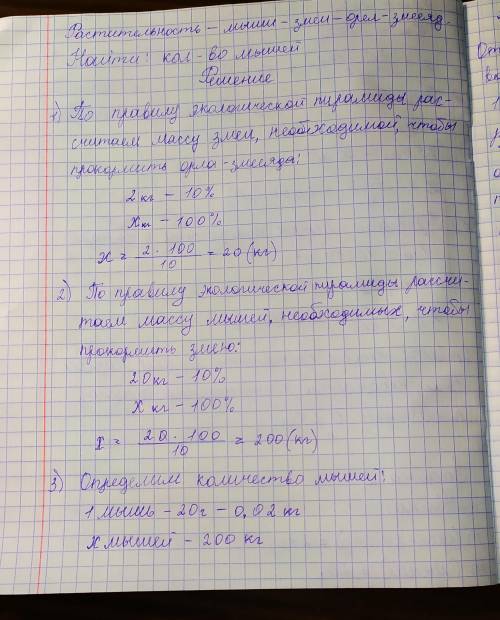 Растительность – мыши – змеи – орел – змееяд.
Найти: кол-во мышей
Решение
1) По правилу экологической пирамиды рас-
считаем массу змеи, необходимой, чтобы
прокормить орла-змееяда:
2 кг – 10%
X кг – 100%
X = 2 · 100 / 10 = 20 (кг)
2) По правилу экологической пирамиды рассчи-
таем массу мышей, необходимых, чтобы
прокормить змею:
20 кг – 10%
X кг – 100%
X = 20 · 100 / 10 = 200 (кг)
3) Определим количество мышей:
1 мышь – 20г – 0,02 кг
X мышей – 200 кг